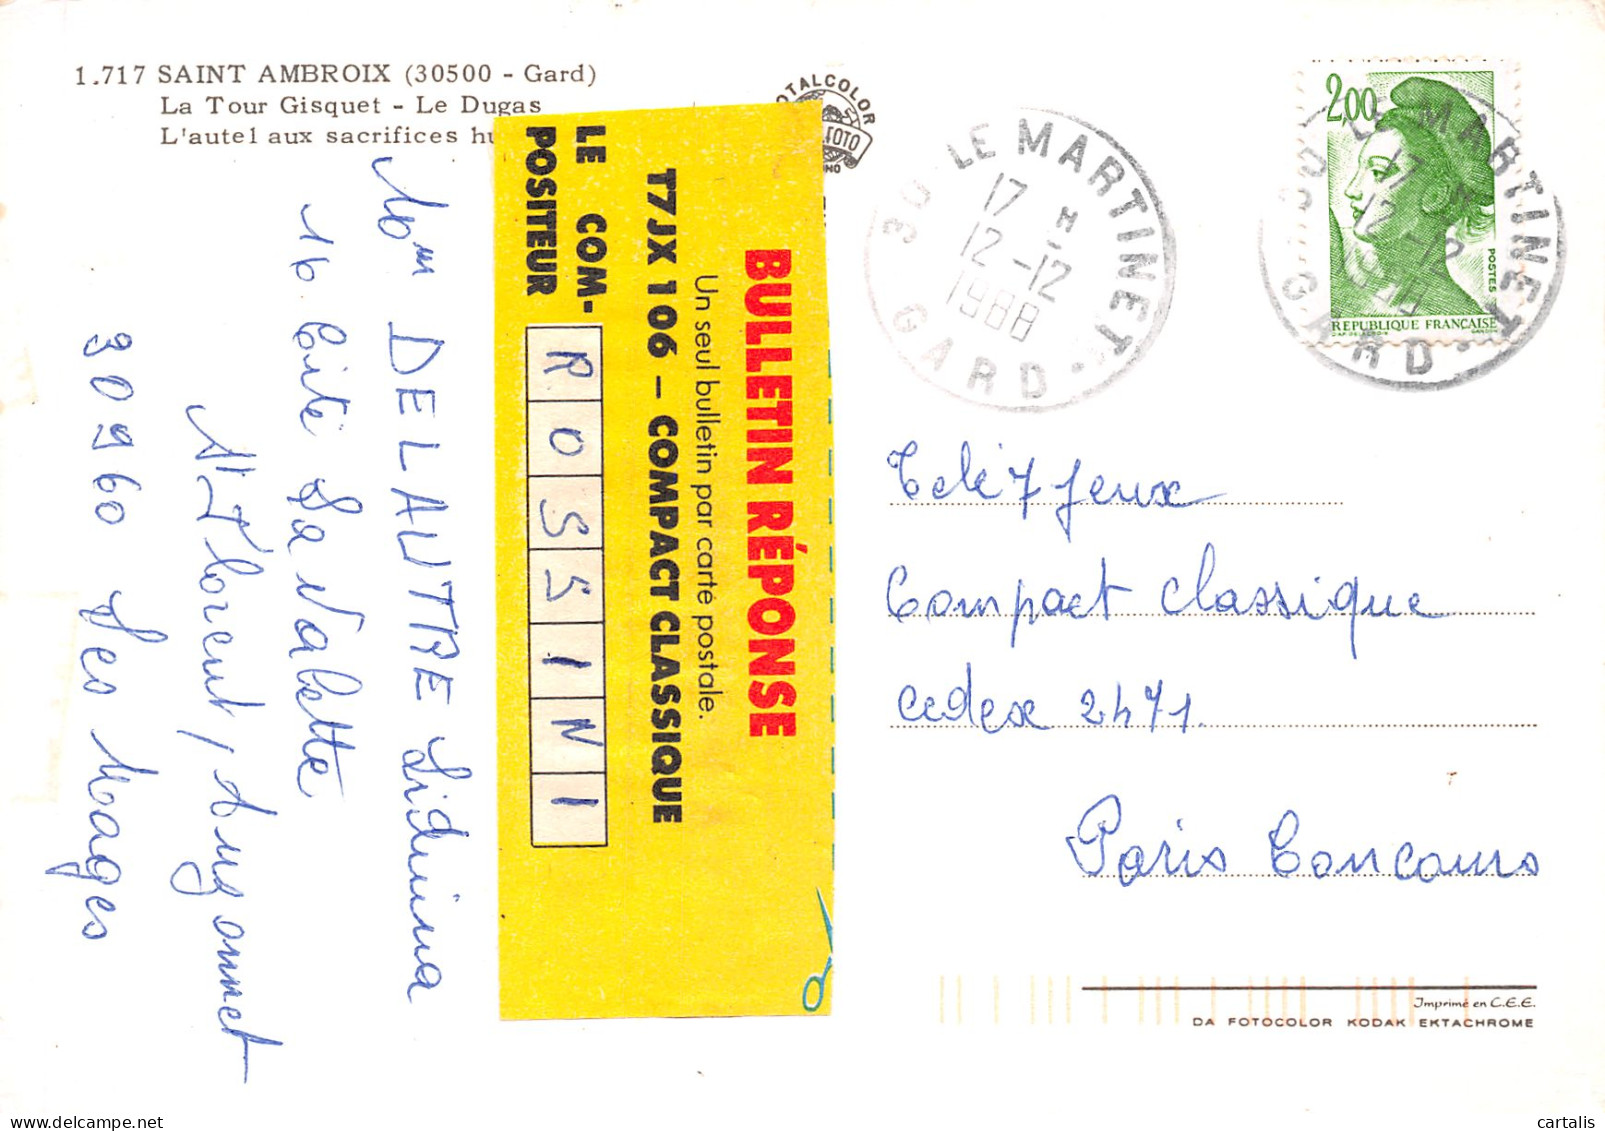 1.717 SAINT AMBROIX (30500 - Gard)
La Tour Gisquet - Le Dugas
L'autel aux sacrifices hu
OTALCOLOR
FOTO
Mme DELAUTRE Lidivina
16 Cité La Valette
St Florent / Auzonnet
30960 Les Mages
BULLETIN RÉPONSE
Un seul bulletin par carte postale.
T7JX 106 – COMPACT CLASSIQUE
LE COM-
POSITEUR
ROSSINI
30 LE MARTINET
17 H
12-12
1988
GARD
2,00
POSTES
REPUBLIQUE FRANÇAISE
30 LE MARTINET
17 H
12-12
GARD
Télé 7 Jeux
Compact classique
cedex 2471.
Paris Concours
Imprimé en C.E.E.
DA FOTOCOLOR KODAK EKTACHROME
cartalis